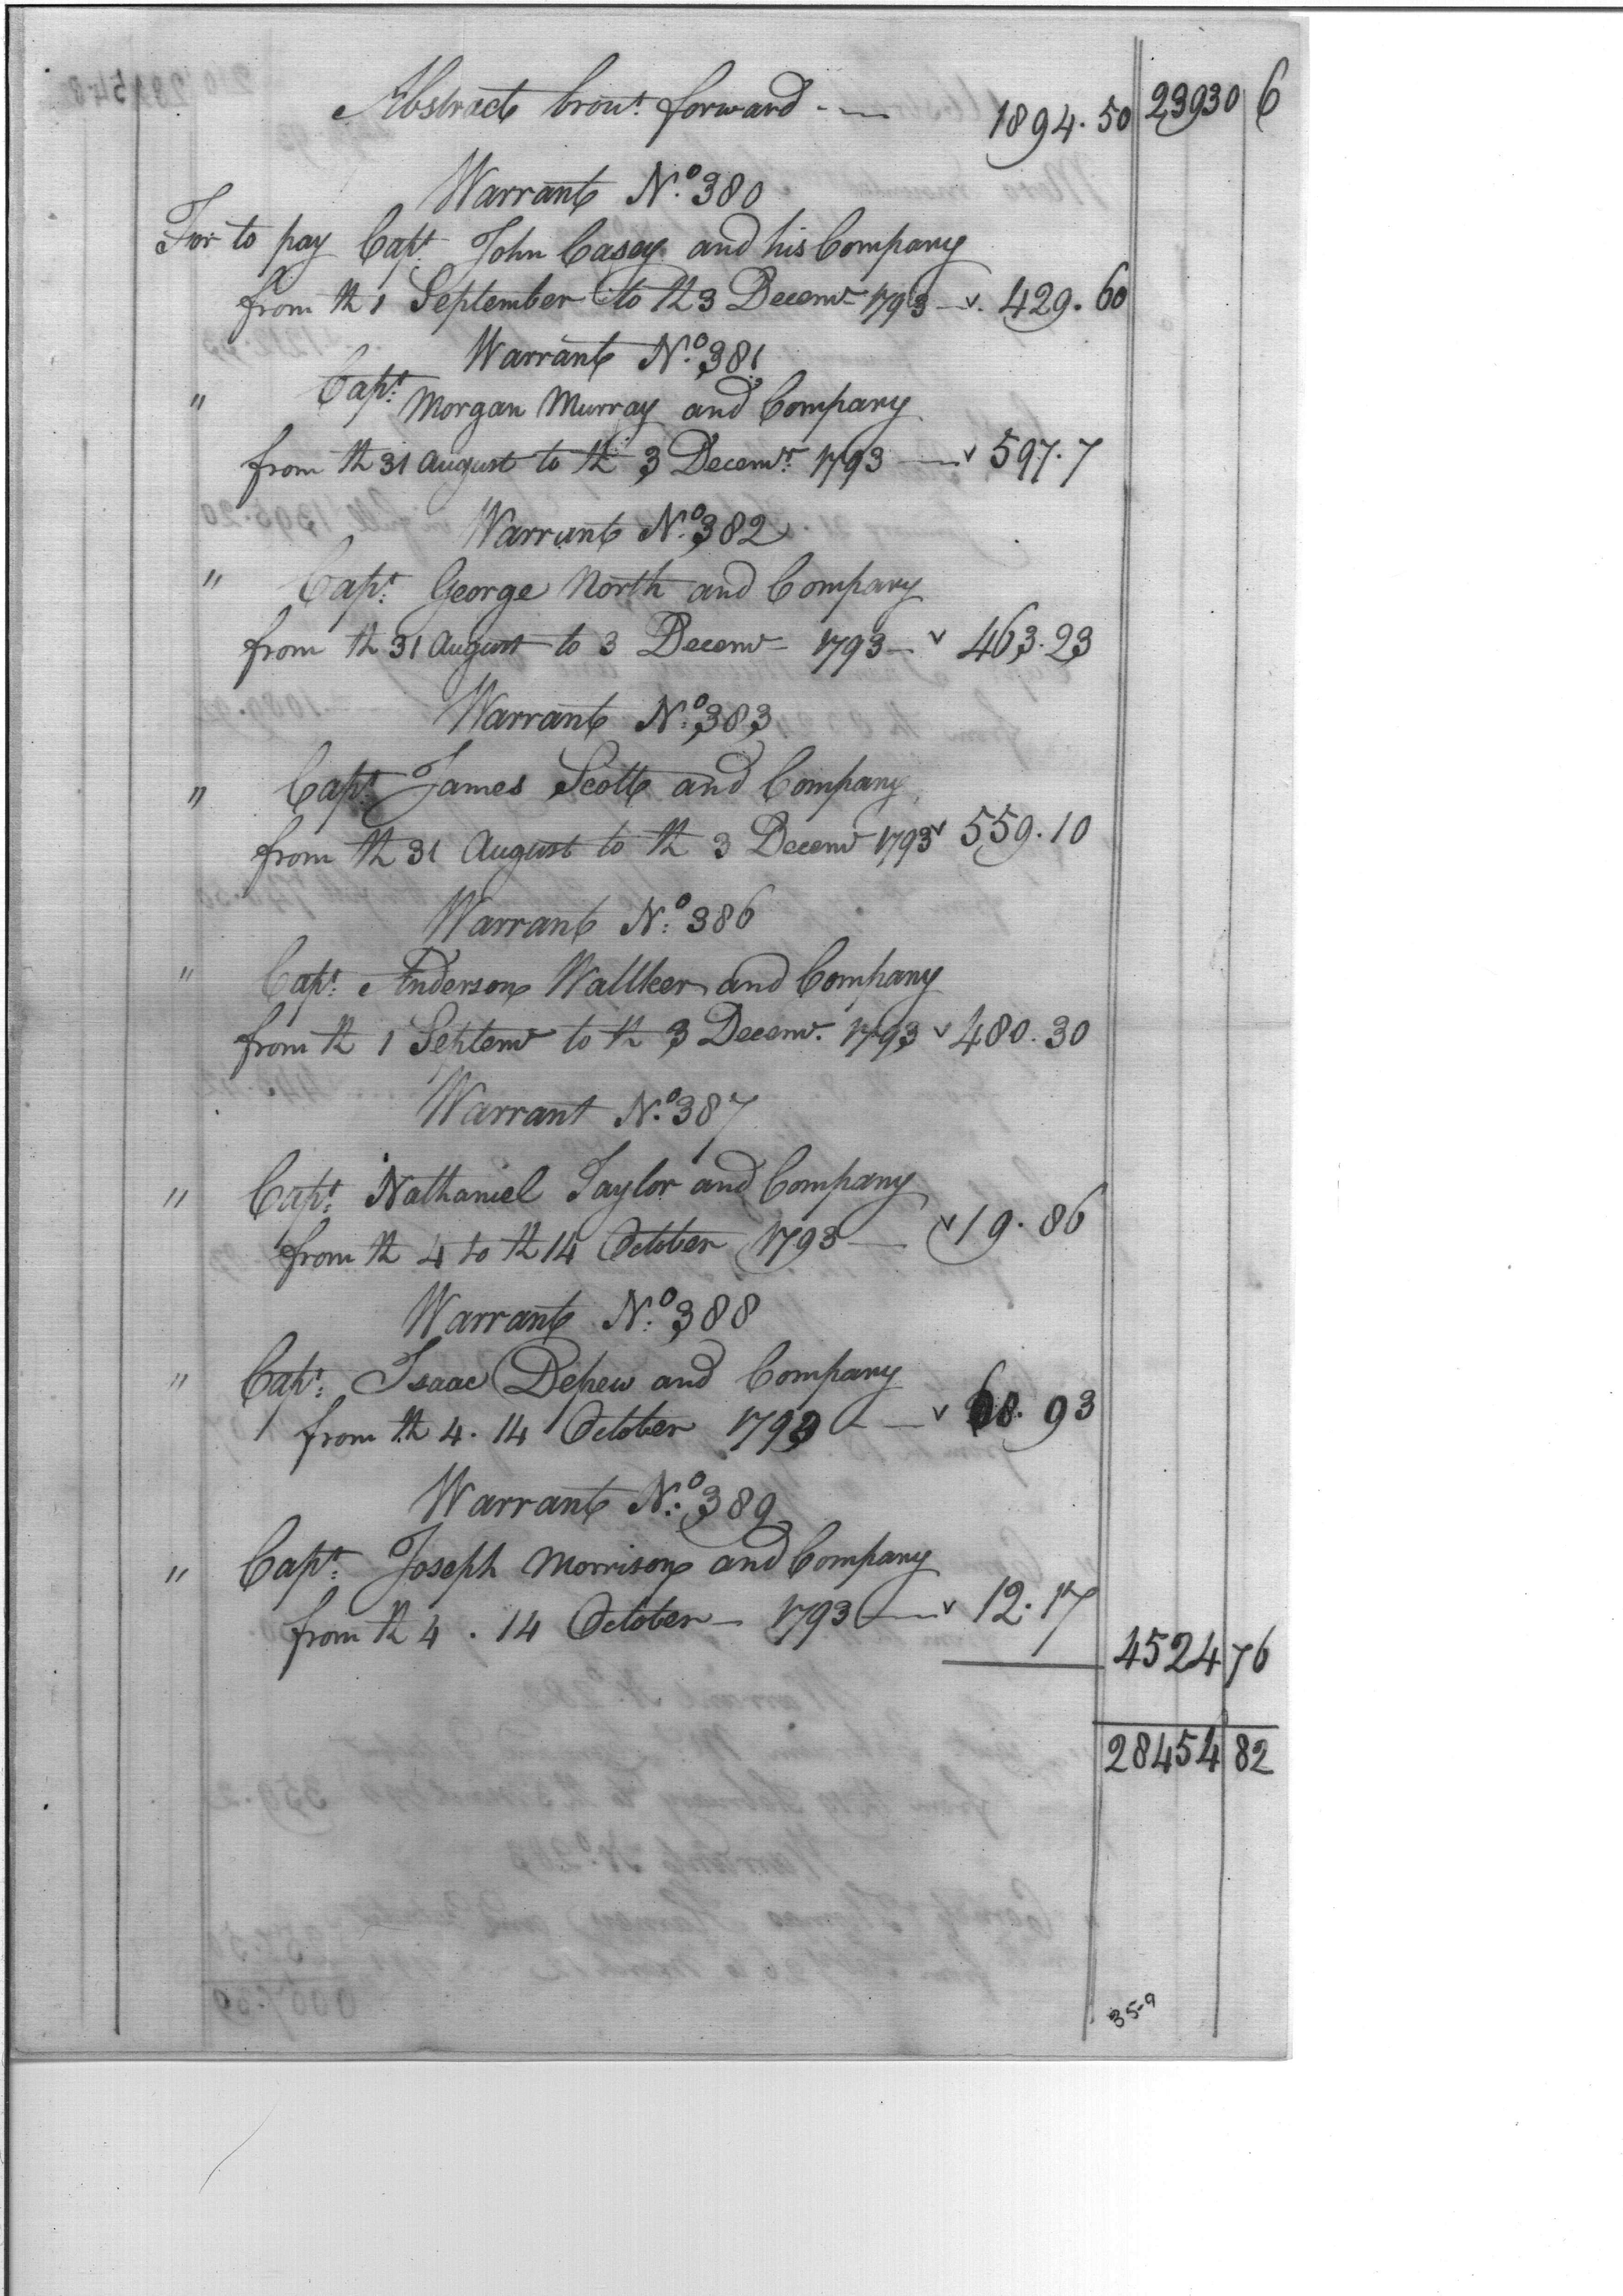 Abstracts brout. forward - — 1894.50 23930 6
Warrant No. 380
For to pay Capt. John Casey and his Company
from th 1 September to th 3 Decemr 1793 — v. 429.60
Warrant No. 381
" Capt. Morgan Murray and Company
from th 31 August to th 3 Decemr. 1793 — v 597.7
Warrant No. 382
" Capt. George North and Company
from th 31 August to 3 Decemr - 1793 — v 463.23
Warrant No. 383
" Capt. James Scott and Company
from th 31 August to th 3 Decemr 1793 v 559.10
Warrant No. 386
" Capt. Anderson Wallker and Company
from th 1 Septemr to th 3 Decemr. 1793 v 480.30
Warrant No. 387
" Capt. Nathaniel Taylor and Company
from th 4 to th 14 October 1793 — v 19.86
Warrant No. 388
" Capt. Isaac Depew and Company
from th 4. 14 October 1793 - — v 68.93
Warrant No. 389
" Capt. Joseph Morrison and Company
from th 4. 14 October — 1793 — v 12.17
4524 76
28454 82
35-9